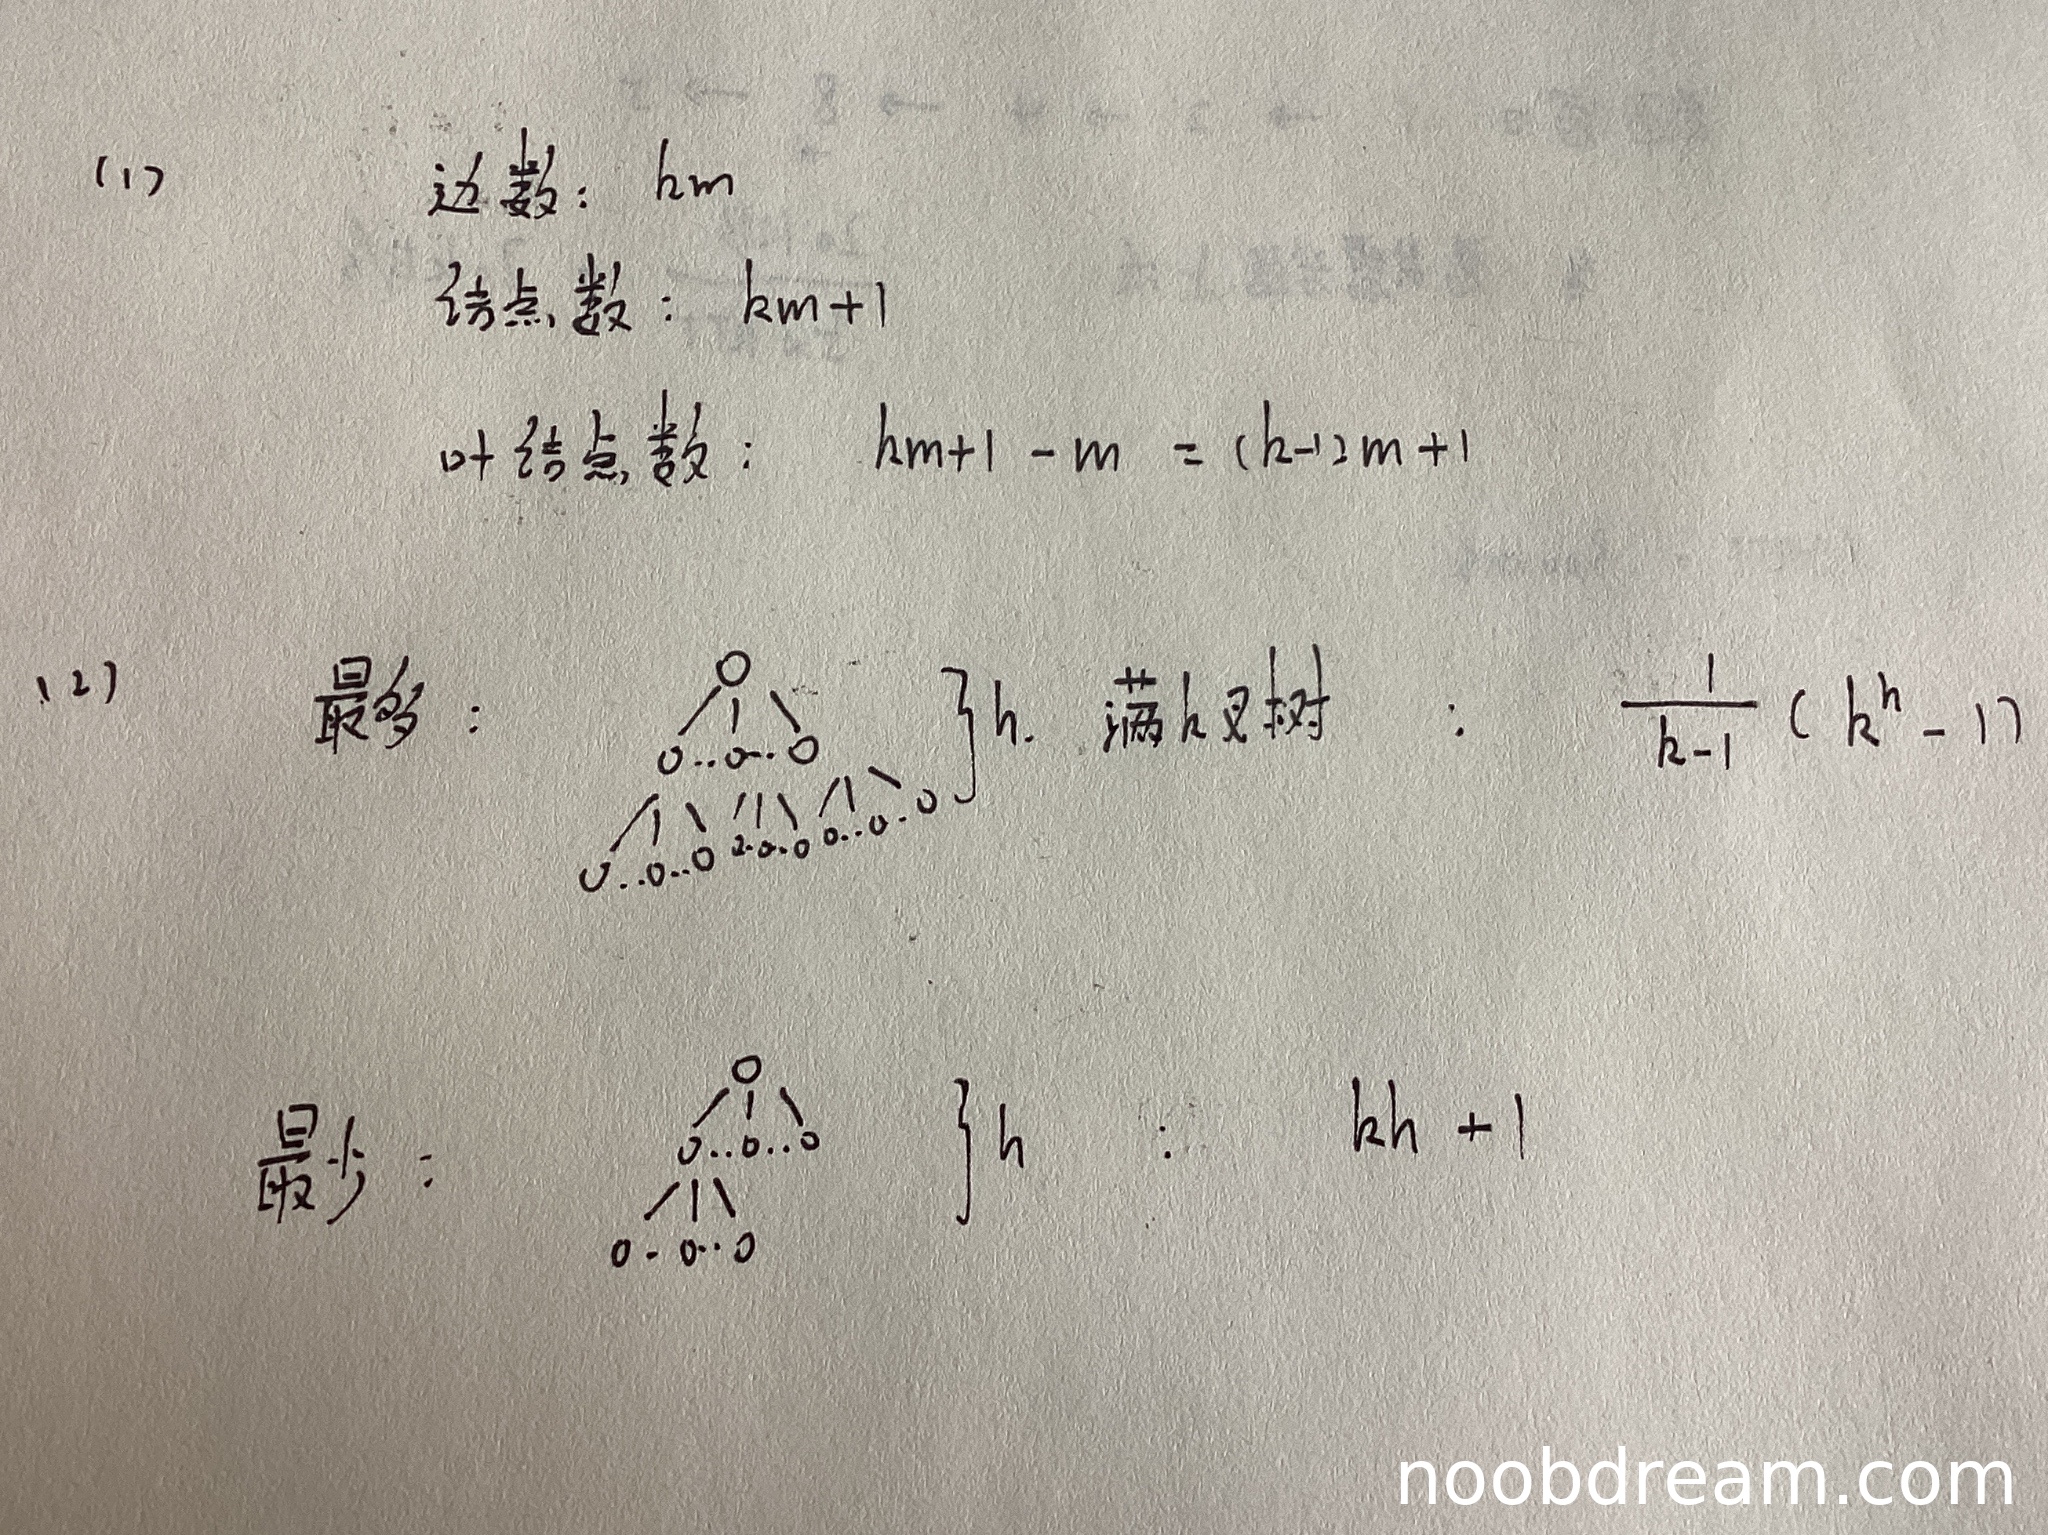 (1) 边数: km
结点数: km+1
叶结点数: km+1 - m = (k-1)m+1
(2) 最多: }h. 满k叉树 : 1/(k-1) (k^h - 1)
最少: }h : kh + 1
noobdream.com